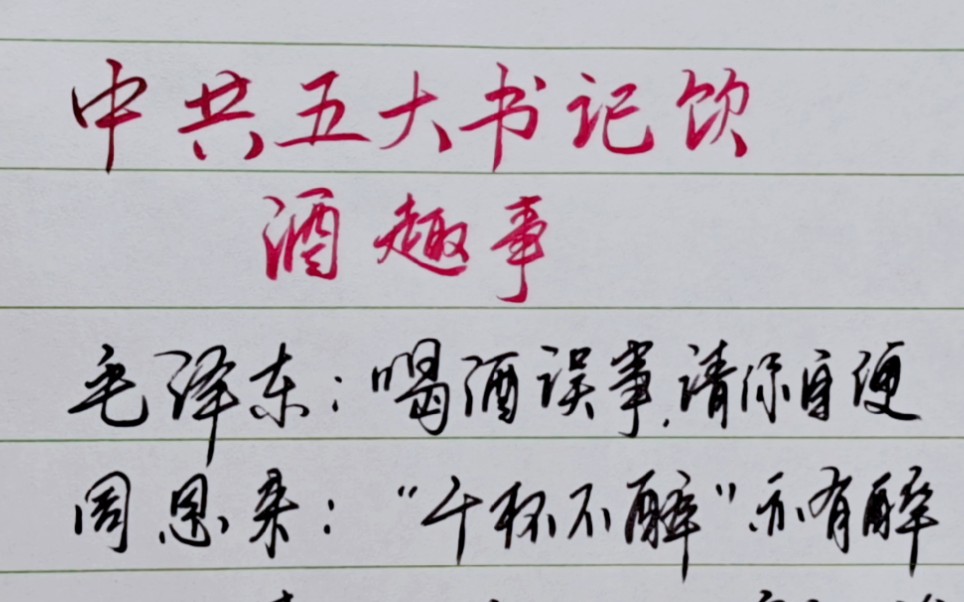 中共五大书记饮
酒趣事
毛泽东:喝酒误事,请你自便
周恩来:“千杯不醉”亦有醉